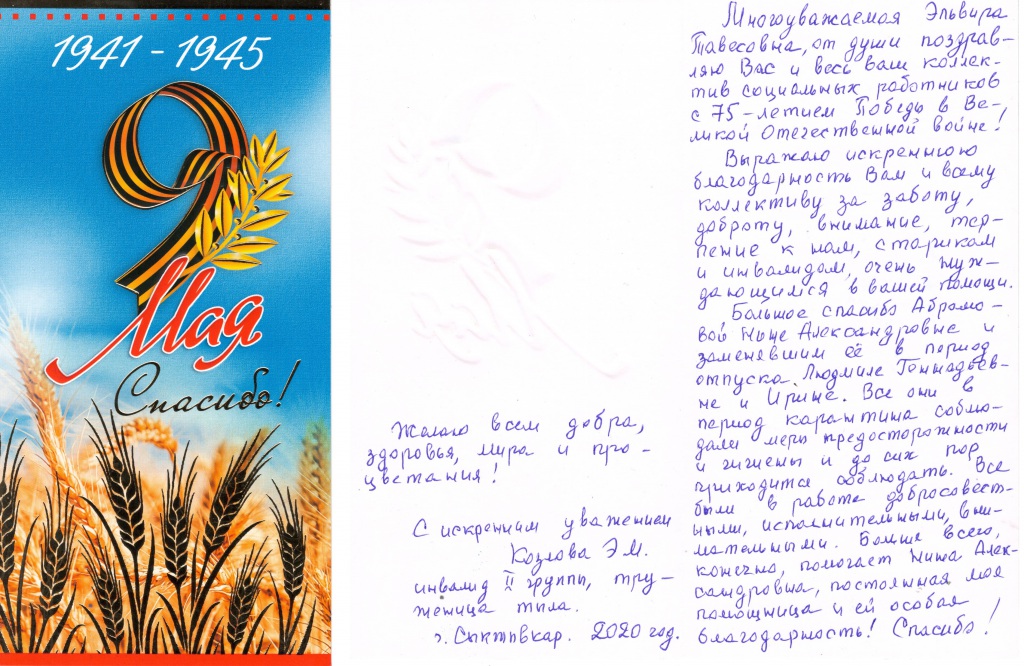 1941 - 1945
9
Мая
Спасибо!
Многоуважаемая Эльвира
Тавесовна, от души поздрав-
ляю Вас и весь ваш коллек-
тив социальных работников
с 75-летием Победы в Ве-
ликой Отечественной войне!
Выражаю искреннюю
благодарность Вам и всему
коллективу за заботу,
доброту, внимание, тер-
пение к нам, старикам
и инвалидам, очень нуж-
дающимся в вашей помощи.
Большое спасибо Абрамо-
вой Нине Александровне и
заменявшим её в период
отпуска Людмиле Геннадьев-
не и Ирине. Все они в
период карантина соблю-
дали меры предосторожности
и гигиены и до сих пор
приходится соблюдать. Все
были в работе добросовест-
ными, исполнительными, вни-
мательными. Больше всего,
конечно, помогает Нина Алек-
сандровна, постоянная моя
помощница и ей особая
благодарность! Спасибо!
Желаю всем добра,
здоровья, мира и про-
цветания!
С искренним уважением
Козлова Э.М.
инвалид II группы, тру-
женица тыла.
г. Сыктывкар. 2020 год.